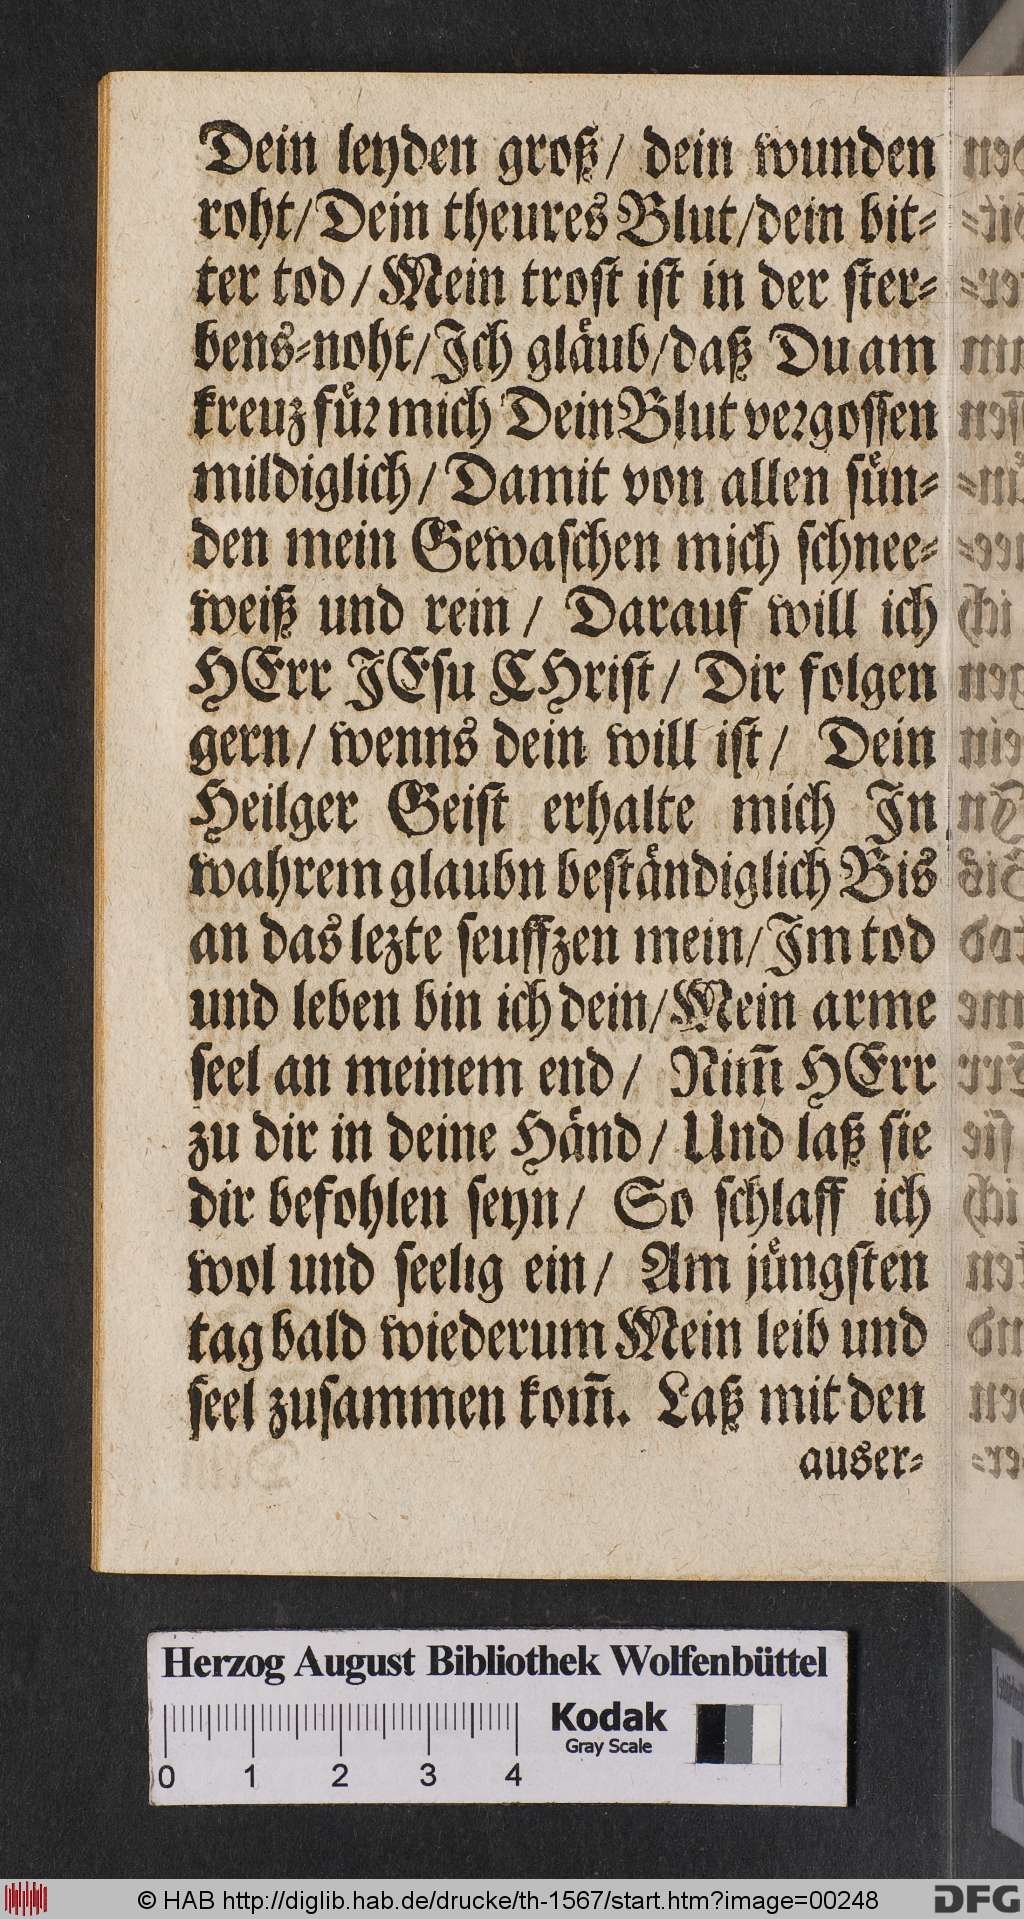 Dein leyden groß/ dein wunden
roht/Dein theures Blut/dein bit-
ter tod/Mein trost ist in der ster-
bens-noht/Ich glaͤub/daß Du am
kreuz fuͤr mich Dein Blut vergossen
mildiglich/Damit von allen suͤn-
den mein Gewaschen mich schnee-
weiß und rein/ Darauf will ich
HErr JEsu CHrist/ Dir folgen
gern/ wenns dein will ist/ Dein
Heilger Geist erhalte mich In
wahrem glaubn bestaͤndiglich Bis
an das lezte seuffzen mein/Im tod
und leben bin ich dein/Mein arme
seel an meinem end/ Nim̄ HErr
zu dir in deine Haͤnd/ Und laß sie
dir befohlen seyn/ So schlaff ich
wol und seelig ein/ Am juͤngsten
tag bald wiederum Mein leib und
seel zusammen kom̄. Laß mit den
auser-
Herzog August Bibliothek Wolfenbüttel
Kodak
Gray Scale
0 1 2 3 4
© HAB http://diglib.hab.de/drucke/th-1567/start.htm?image=00248
DFG